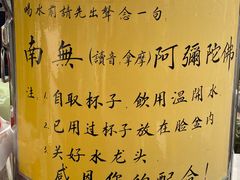 喝水前請先出聲念一句
南無(讀音,拿摩)阿彌陀佛
注 1 自取杯子.飲用溫開水
2 已用过杯子放在脸盆内
3 关好水龙头.
感恩你的配合!